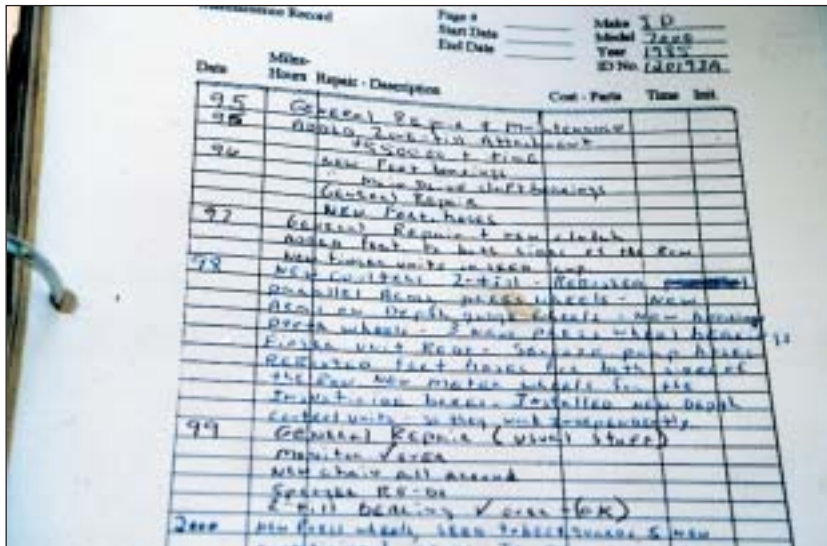 Maintenance Record
Page #
Start Date
End Date
Make J D
Model 7000
Year 1985
ID No. 120192A
Date Miles-Hours Repair - Description Cost - Parts Time Init.
95 General Repair & Maintenance
95 Added Zone-till Attachment
+ time
96 New Fert bearings
Main Drive shaft bearings
General Repair
New Fert. hoses
97 General Repair + new clutch
Added Fert to both sides of the Row
New finger units in seed
98 New coulters Z-till - Rebuilt
Parallel Arms press wheels - New
Arms on Depth gauge wheels - New bearings
Depth wheels - 3 new press wheel bearings
Finger unit Rear - pump hoses
Fert hoses for both sides of
the Row New meter wheels for the
Insecticide boxes. Installed new Depth
Control units - so they work independently
99 General Repair (usual stuff)
Monitor ✓ over
New chain all around
Re-Do
Z-till Bearing ✓ over - (OK)
2000 New Press wheels, seed guards & new